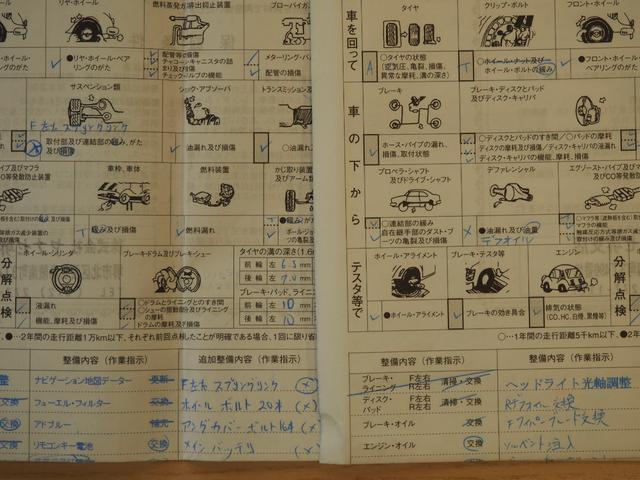 燃料蒸発ガス排出抑止装置
リヤ・ホイール
ブローバイガス
●リヤ・ホイール・ベアリングのがた
配管等の損傷
チャコール・キャニスタの詰まり及び損傷
チェック・バルブの機能
メターリング・バ
配管の損傷
サスペンション類
ショック・アブソーバ
トランスミッション及
F左右スプリングリンク
取付部及び連結部の緩み、がた及び損傷
油漏れ及び損傷
油漏れ
車枠、車体
燃料装置
緩み及び損傷
燃料漏れ
ホイール・シリンダ
ブレーキ・ドラム及びブレーキ・シュー
タイヤの溝の深さ(1.6m
前輪 左 6.3 mm
後輪 左 7.0 mm
ブレーキ・パッド、ライニン
前輪 左 10 mm
後輪 左 10 mm
分解点検
液漏れ
機能、摩耗及び損傷
○ドラムとライニングとのすき間
○シューの摺動部分及びライニングの摩耗
ドラムの摩耗及び損傷
●…2年間の走行距離1万km以下、それぞれ前回点検したことが明確である場合、1回に限り省
整備内容(作業指示)
追加整備内容(作業指示)
ナビゲーション地図データー 更新
F左右 スプリングリンク (×)
交換 フューエル・フィルター 交換
ホイール ボルト 20本 (×)
交換 アドブルー 補充
アンダカバーボルト16本 (×)
交換 リモコンキー電池 交換
メイン バッテリ (×
車を回って
タイヤ
クリップ・ボルト
フロント・ホイール
A ○タイヤの状態(空気圧、亀裂、損傷、異常な摩耗、溝の深さ)
T ○ホイール・ナット及びホイール・ボルトの緩み
●フロント・ホイール・ベアリングのがた
車の下から
ブレーキ
ブレーキ・ディスクとパッド及びディスク・キャリパ
ホース・パイプの漏れ、損傷、取付状態
○ディスクとパッドのすき間/○パッドの摩耗
ディスクの摩耗及び損傷/ディスク・キャリパの液漏れ
ディスク・キャリパの機能、摩耗、損傷
プロペラ・シャフト及びドライブ・シャフト
デファレンシャル
エグゾースト・パイプ及
○連結部の緩み
自在継手部のダスト・ブーツの亀裂及び損傷
●油漏れ及び油量
デフオイル
テスタ等で
ホイール・アライメント
ブレーキ・テスタ等
エンジン
●ホイール・アライメント
ブレーキの効き具合
排気の状態(CO、HC、白煙、黒煙等)
分解点検
○…1年間の走行距離5千km以下、●…2年
整備内容(作業指示)
整備内容(作業指示)
ブレーキ・ライニング F左右 R左右 清掃・交換
ヘッドライト光軸調整
ディスク・パッド F左右 R左右 清掃・交換
Rデフオイル交換
ブレーキ・オイル 交換
Fワイパーブレード交換
エンジン・オイル 交換
ソルベント注入